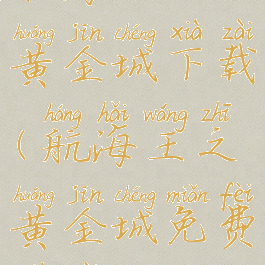 huáng jīn chéng xià zài
黄金城下载
háng hǎi wáng zhī
(航海王之
huáng jīn chéng miǎn fèi
黄金城免费